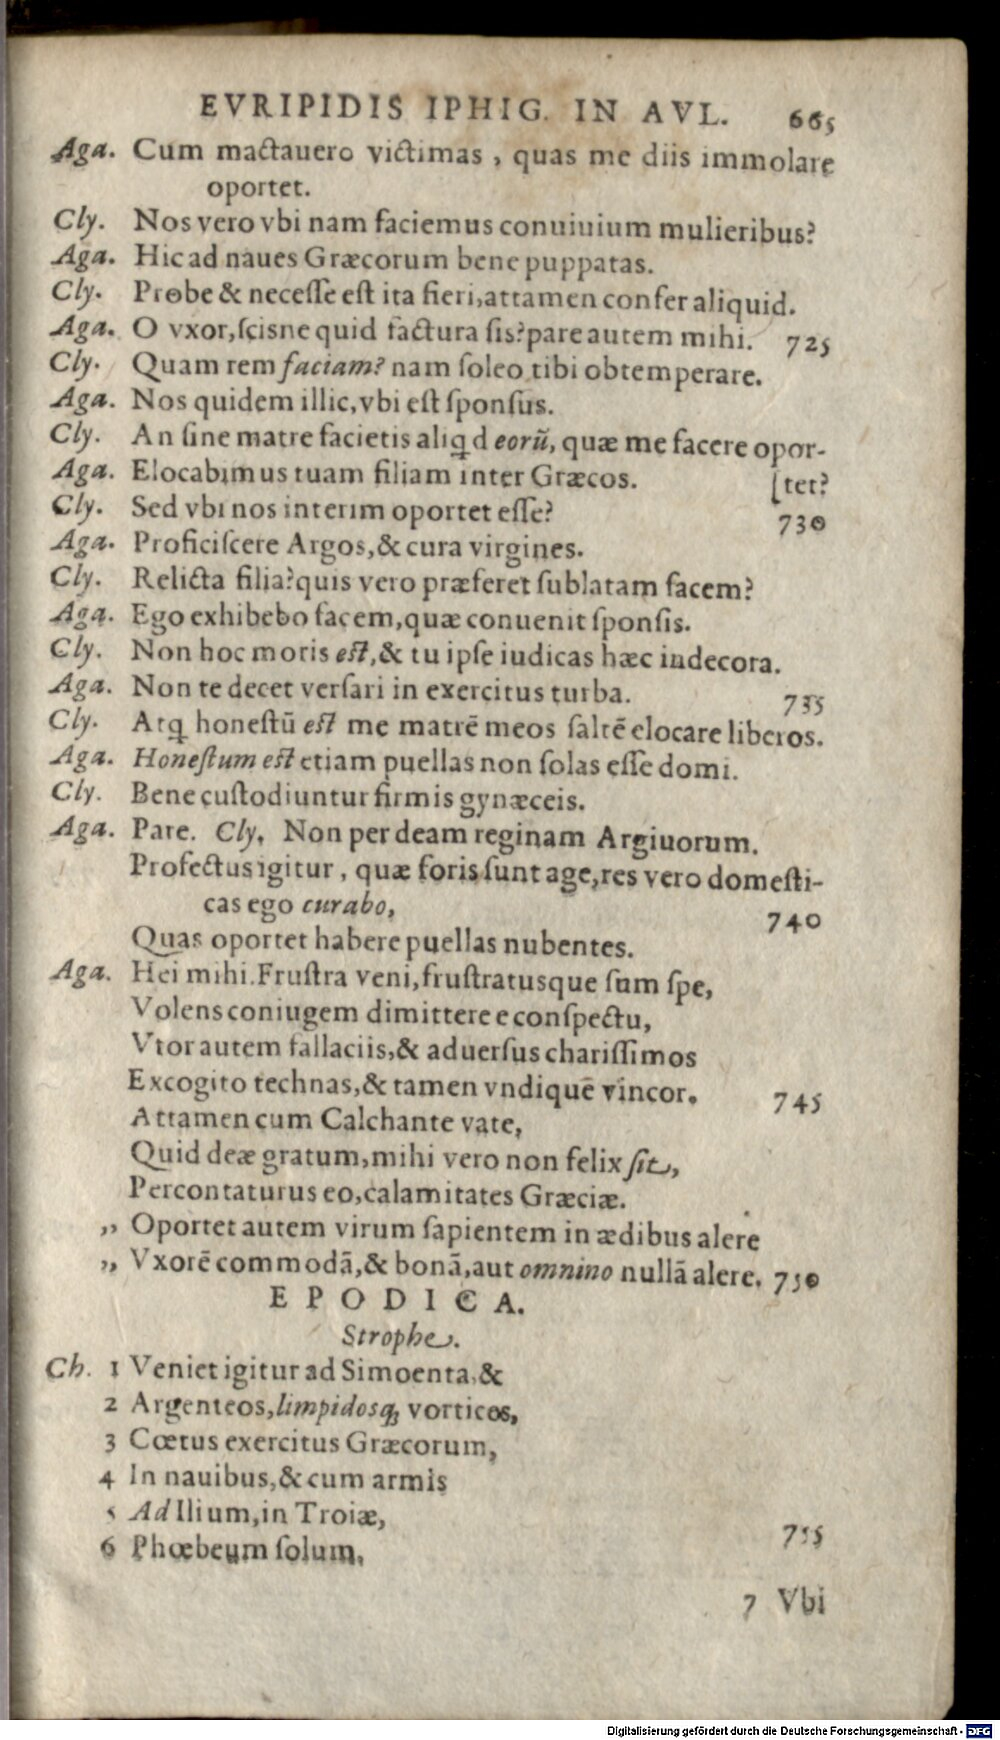 EVRIPIDIS IPHIG. IN AVL. 665
Aga. Cum mactauero victimas, quas me diis immolare
oportet.
Cly. Nos vero vbi nam faciemus conuiuium mulieribus?
Aga. Hic ad naues Græcorum bene puppatas.
Cly. Probe & necesse est ita fieri, attamen confer aliquid.
Aga. O vxor, scisne quid factura sis? pare autem mihi. 725
Cly. Quam rem faciam? nam soleo tibi obtemperare.
Aga. Nos quidem illic, vbi est sponsus.
Cly. An sine matre facietis aliꝗd eorū, quæ me facere opor-
Aga. Elocabimus tuam filiam inter Græcos. [tet?
Cly. Sed vbi nos interim oportet esse? 730
Aga. Proficiscere Argos, & cura virgines.
Cly. Relicta filia? quis vero præferet sublatam facem?
Aga. Ego exhibebo facem, quæ conuenit sponsis.
Cly. Non hoc moris est, & tu ipse iudicas hæc indecora.
Aga. Non te decet versari in exercitus turba. 735
Cly. Atꝗ honestū est me matrē meos saltē elocare liberos.
Aga. Honestum est etiam puellas non solas esse domi.
Cly. Bene custodiuntur firmis gynæceis.
Aga. Pare. Cly. Non per deam reginam Argiuorum.
Profectus igitur, quæ foris sunt age, res vero domesti-
cas ego curabo, 740
Quas oportet habere puellas nubentes.
Aga. Hei mihi. Frustra veni, frustratusque sum spe,
Volens coniugem dimittere e conspectu,
Vtor autem fallaciis, & aduersus charissimos
Excogito technas, & tamen vndique vincor. 745
Attamen cum Calchante vate,
Quid deæ gratum, mihi vero non felix sit,
Percontaturus eo, calamitates Græciæ.
,, Oportet autem virum sapientem in ædibus alere
,, Vxorē commodā, & bonā, aut omnino nullā alere. 750
EPODICA.
Strophe.
Ch. 1 Veniet igitur ad Simoenta, &
2 Argenteos, limpidosꝗ vortices,
3 Cœtus exercitus Græcorum,
4 In nauibus, & cum armis
5 Ad Ilium, in Troiæ,
6 Phœbeum solum, 755
7 Vbi
Digitalisierung gefördert durch die Deutsche Forschungsgemeinschaft - DFG